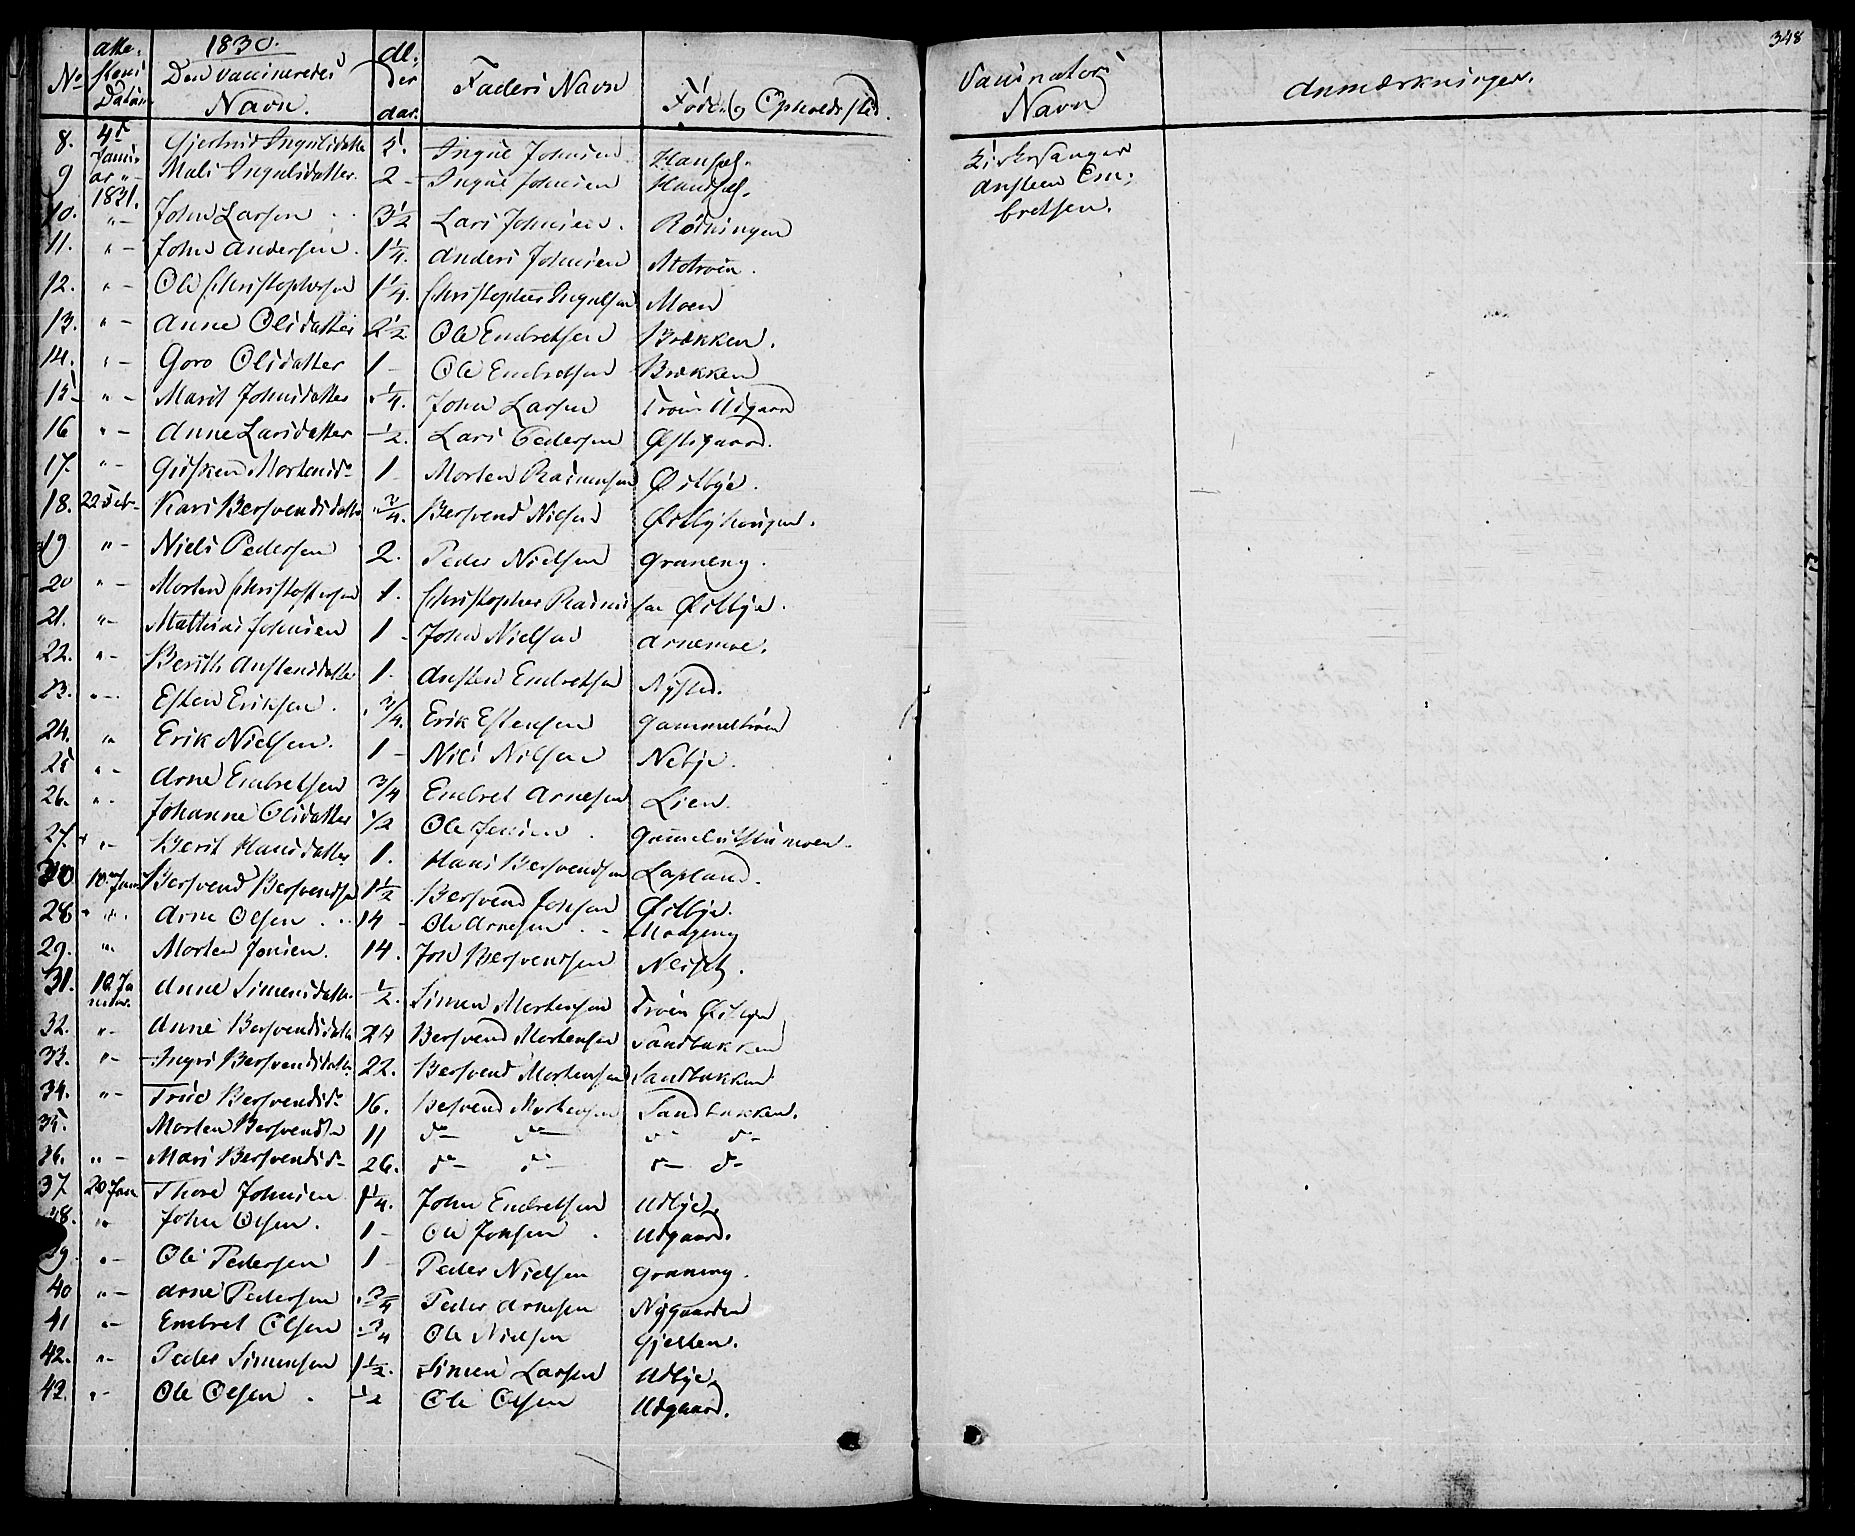 348
1830.
No Attestens Datum Den Vaccineredes Navn. Alder Aar. Faders Navn Føde og Opholdssted. Vaccinators Navn Anmærkninger.
8. 4d Januar 1831. Gjertrud Ingulsdatter Johnsen Kirkesanger Ansteen Embretsen.
9 " - Mali Ingulsdatter. 2 - Johnsen
10. " - John Larsen 3 1/2 Lars Johnsen. Rødningen
11. " - John Andersen. 1 1/4. Anders Johnsen Motroen.
12. " - Ole Christophersen 1 1/4. Christopher Ingulsen Moen
13. " - Anne Olsdatter 2 1/2 Ole Embretsen Brækken.
14. " - Goro Olsdatter 1 - Ole Embretsen Brækken
15 - " - Marit Johnsdatter 1/4. John Larsen Troen Udgaard
16 " - Anne Larsdatter 1/2. Lars Pedersen Østgaard.
17. " - Gisken Mortensd. 1 Morten Rasmussen Østbye.
18. 22 Feb - Kari Bersvendsdatter 3/4. Bersvend Nielsen Østbyhougen.
19 " - Niels Pedersen 2. Peder Nielsen Graneng.
20 " - Morten Christophersen 1. Christopher Rasmussen Østbye.
21. " - Mathias Johnsen 1 - John Nielsen Arnemoe.
22. " - Berith Anstensdatter 1 - Ansten Embretsen Nysted.
23. " - Esten Eriksen. 3/4. Erik Estensen Gammeltroen
24. " Erik Nielsen. 1 - Niels Nilsen Nebye.
25 " - Arne Embretsen 3/4 Embret Arnesen Lien.
26. " - Johanne Olsdatter 1/2 Ole Jensen.
27. " - Berit Hansdatter 1. Hans Bersvendsen Lapland.
30 10. Jan Bersvend Bersvendsen 1 1/2 Bersvend Jonsen Østbye.
28 " Arne Olsen 14 - Ole Arnesen. - Moegeng
29. " Morten Jonsen. 14. Jon Bersvendsen
31. 10 Januar. Anne Simensdatter 1/2. Simen Mortensen Troen
32. " - Anne Bersvendsdatter 24 Bersvend Mortensen Sandbakken
33. " - Ingri Bersvendsdatter 22. Bersvend Mortensen Sandbakken
34. " - Bersvendsd. 16. Besvend Mortensen Sandbakken.
35. Morten Bersvendsen 11 do do do do
36. " - Mari Bersvendsd. 26. do do do do
37 20 Jan Thore Johnsen 1 1/4. John Embretsen Udbye.
38. " John Olsen. 1 - Ole Jonsen. Udgaard.
39. " - Ole Pedersen 1 - Peder Nielsen Graneng.
40 " - Arne Pedersen 3/4 Peder Arnesen Nygaarden
41 " - Embret Olsen 3/4 Ole Nielsen Gjelten.
42. " - Peder Simensen 1 1/2. Simen Larsen Udbye.
43. " - Ole Olsen. 1/2 Ole Olsen Udgaard.